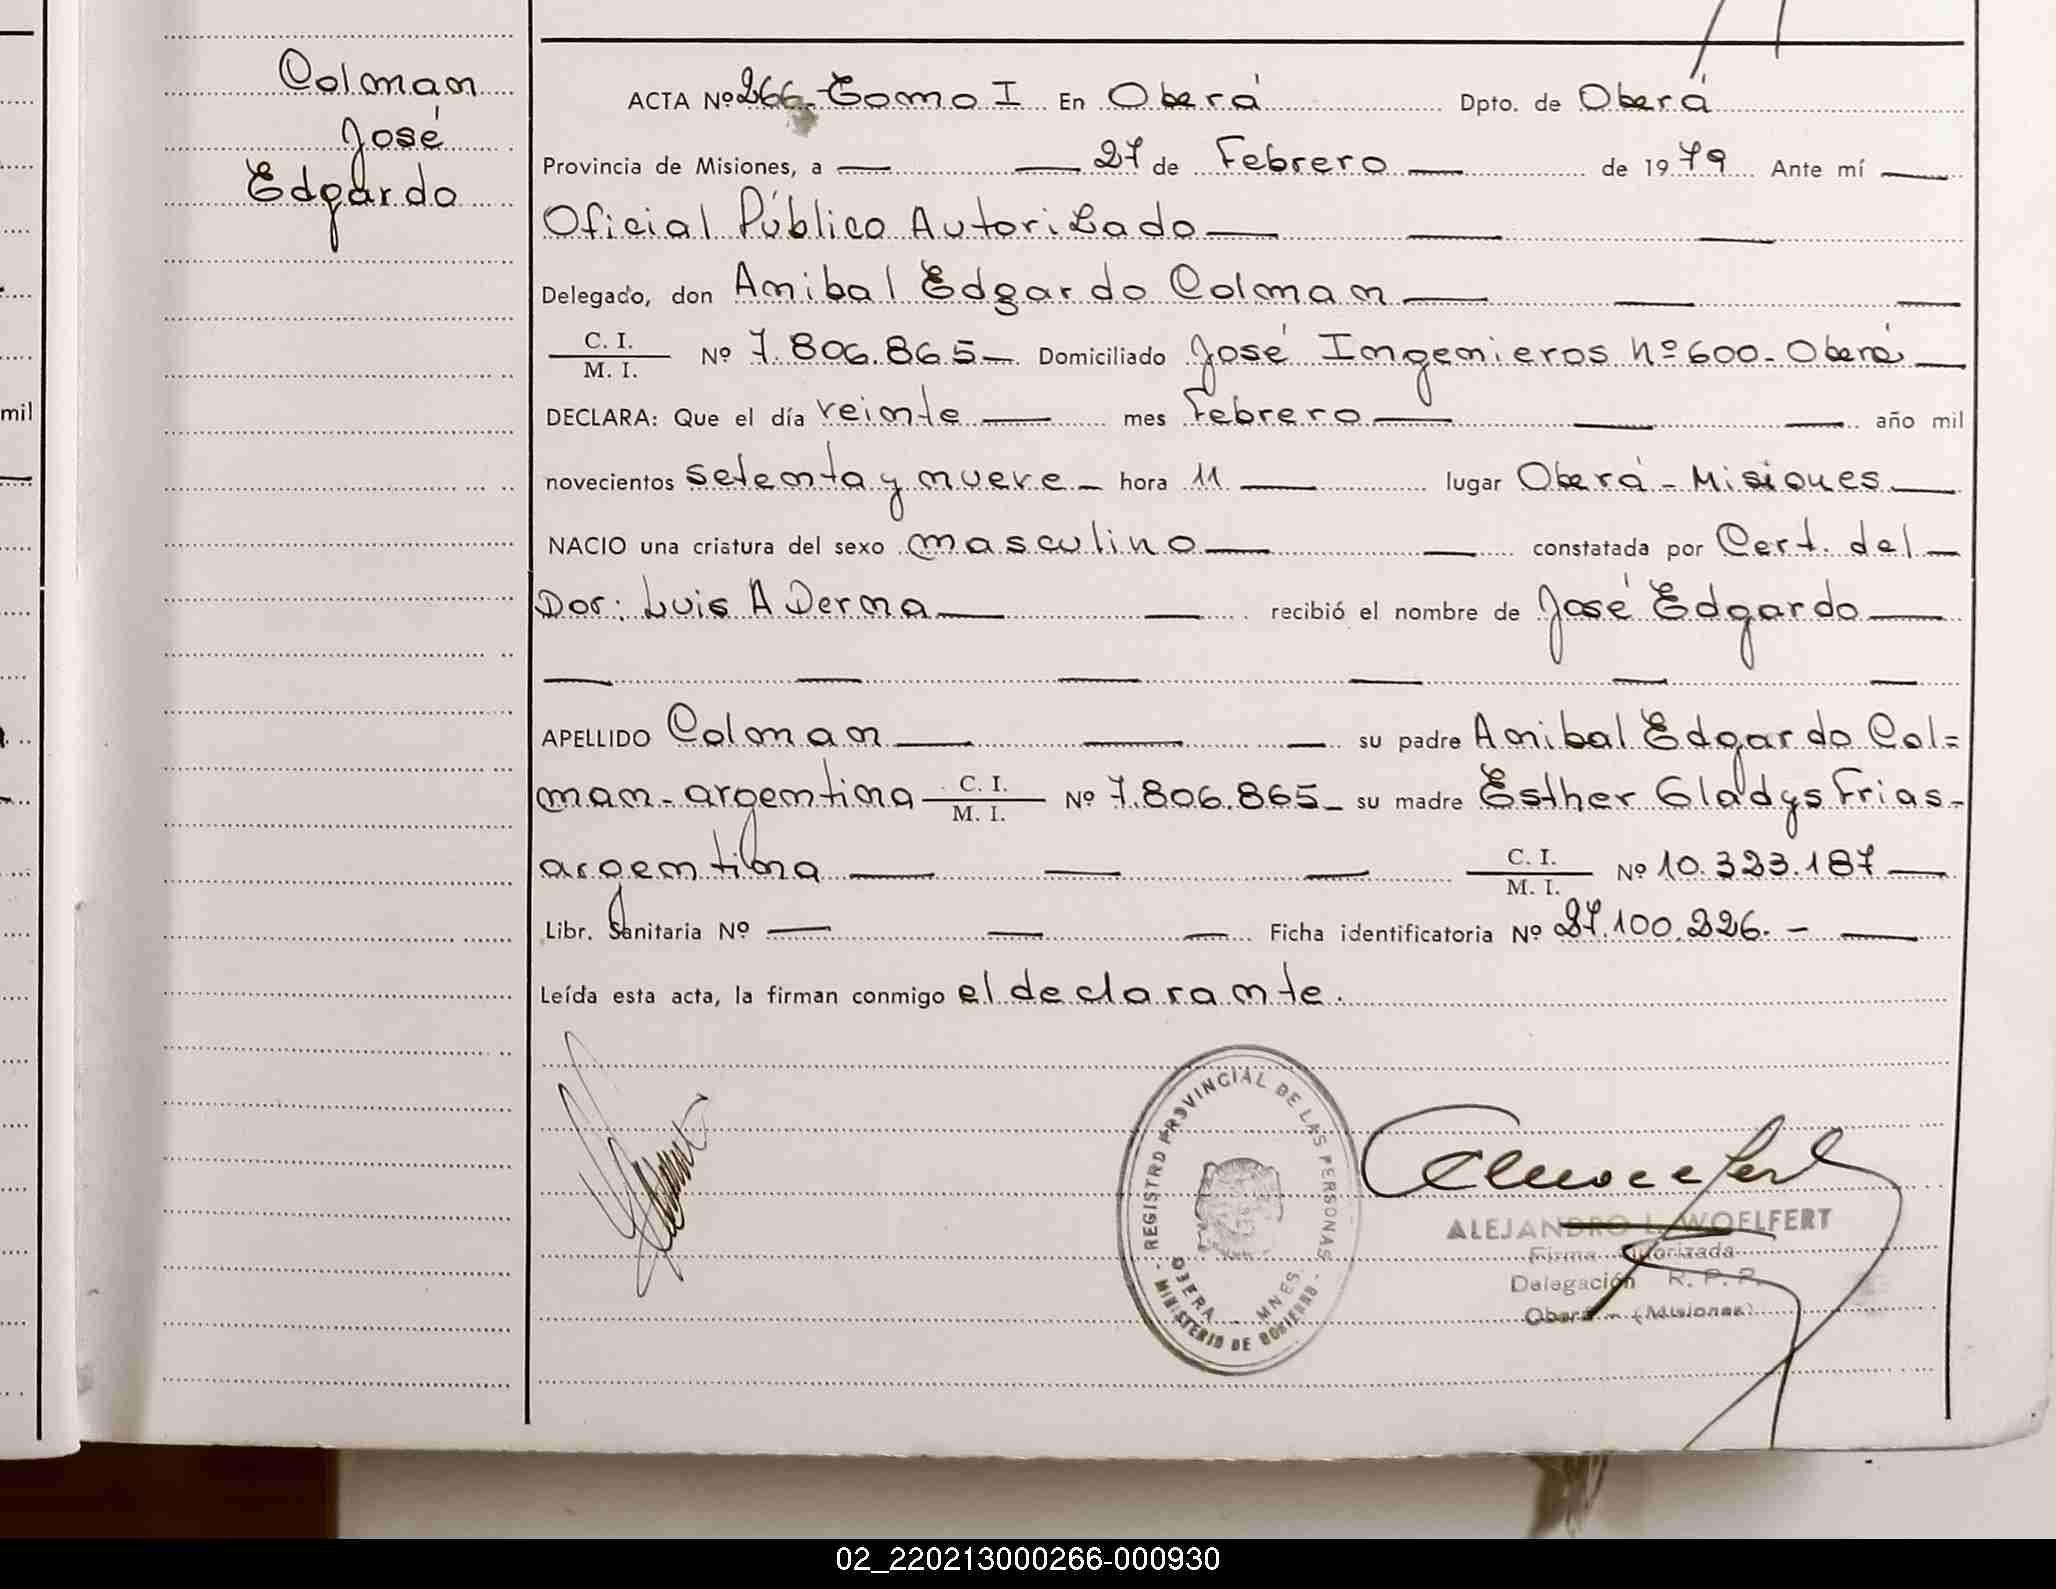 Colman
José
Edgardo
ACTA Nº 266.-Tomo I En Oberá Dpto. de Oberá
Provincia de Misiones, a — — 27 de Febrero — de 1979 Ante mí —
Oficial Público Autorizado — — —
Delegado, don Anibal Edgardo Colman — — —
C. I.
M. I. Nº 7.806.865 — Domiciliado José Ingenieros Nº 600 - Oberá —
DECLARA: Que el día veinte — mes Febrero — — — año mil
novecientos setenta y nueve — hora 11 — lugar Oberá - Misiones —
NACIO una criatura del sexo masculino — — constatada por Cert. del —
Dor: Luis A Derna — — recibió el nombre de José Edgardo —
— — — — — —
APELLIDO Colman — — — su padre Anibal Edgardo Col=
man - argentina C. I. M. I. Nº 7.806.865 - su madre Esther Gladys Frias -
argentina — — — C. I. M. I. Nº 10.323.187 —
Libr. Sanitaria Nº — — — Ficha identificatoria Nº 27.100.226. - —
Leída esta acta, la firman conmigo el declarante.
REGISTRO PROVINCIAL DE LAS PERSONAS
OBERA - MNES.
MINISTERIO DE GOBIERNO
ALEJANDRO L. WOELFERT
Firma Autorizada
Delegación R. P. P.
Oberá - (Misiones)
mil
02_220213000266-000930